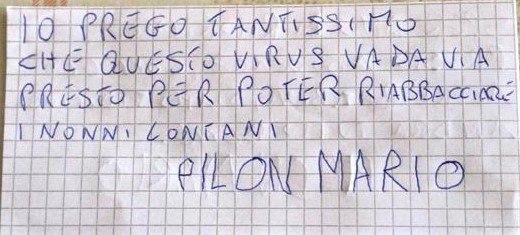 IO PREGO TANTISSIMO
CHE QUESTO VIRUS VADA VIA
PRESTO PER POTER RIABBACCIARE
I NONNI LONTANI
PILON MARIO